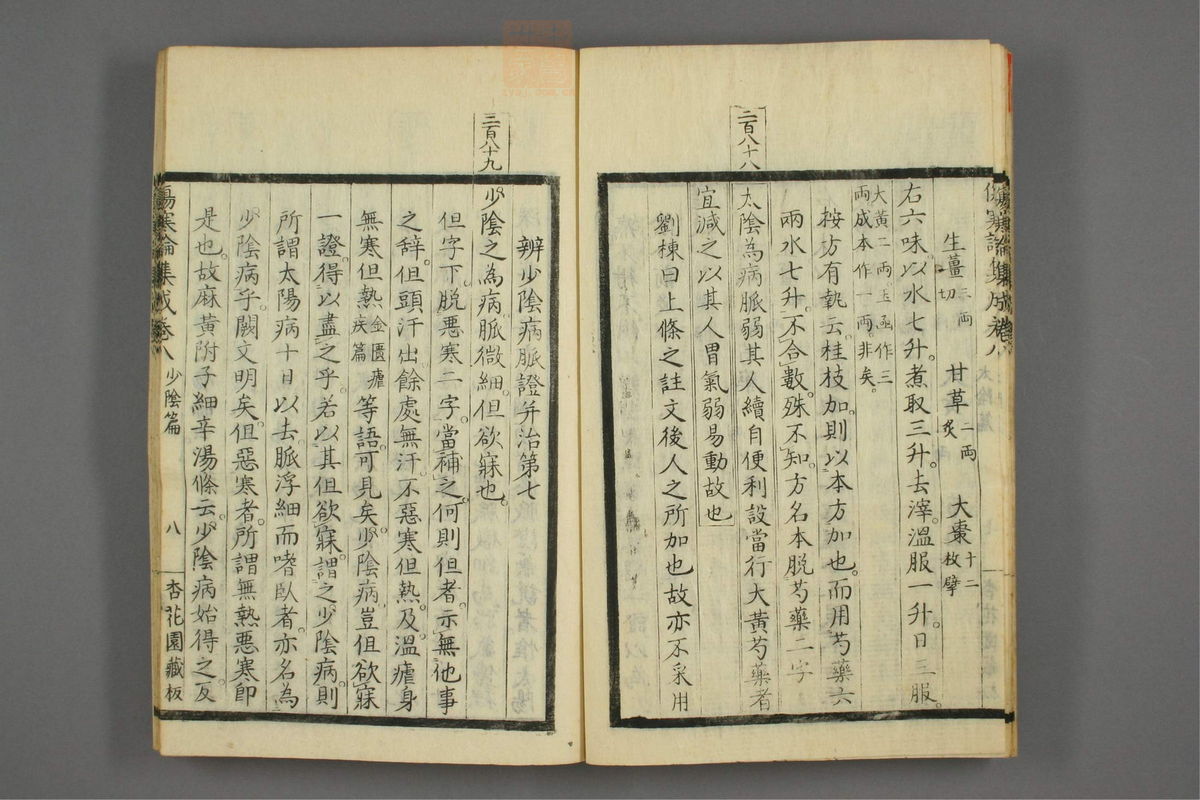 二百八十八
生薑三両切　甘草二両炙　大棗十二枚擘
右六味。以水七升。煮取三升。去滓。溫服一升。日三服。
大黃二両玉函作三両成本作一両非矣。
按方有執云。桂枝加。則以本方加也。而用芍藥六
兩。水七升。不合數。殊不知。方名本脫芍藥二字
太陰為病脈弱其人續自便利設當行大黃芍藥者
宜減之以其人胃氣弱易動故也
劉棟曰上條之註文後人之所加也故亦不采用
三百八十九
辨少陰病脈證并治第七
少陰之為病。脈微細。但欲寐也。
但字下。脫惡寒二字。當補之。何則但者。示無他事
之辭。但頭汗出。餘處無汗。不惡寒但熱。及溫瘧身
無寒但熱金匱瘧疾篇等語。可見矣。少陰病。豈但欲寐
一證。得以盡之乎。若以其但欲寐。謂之少陰病。則
所謂太陽病十日以去。脈浮細而嗜臥者。亦名為
少陰病乎。闕文明矣。但惡寒者。所謂無熱惡寒即
是也。故麻黃附子細辛湯條云。少陰病始得之。反
傷寒論集成卷八　少陰篇　八　杏花園藏板